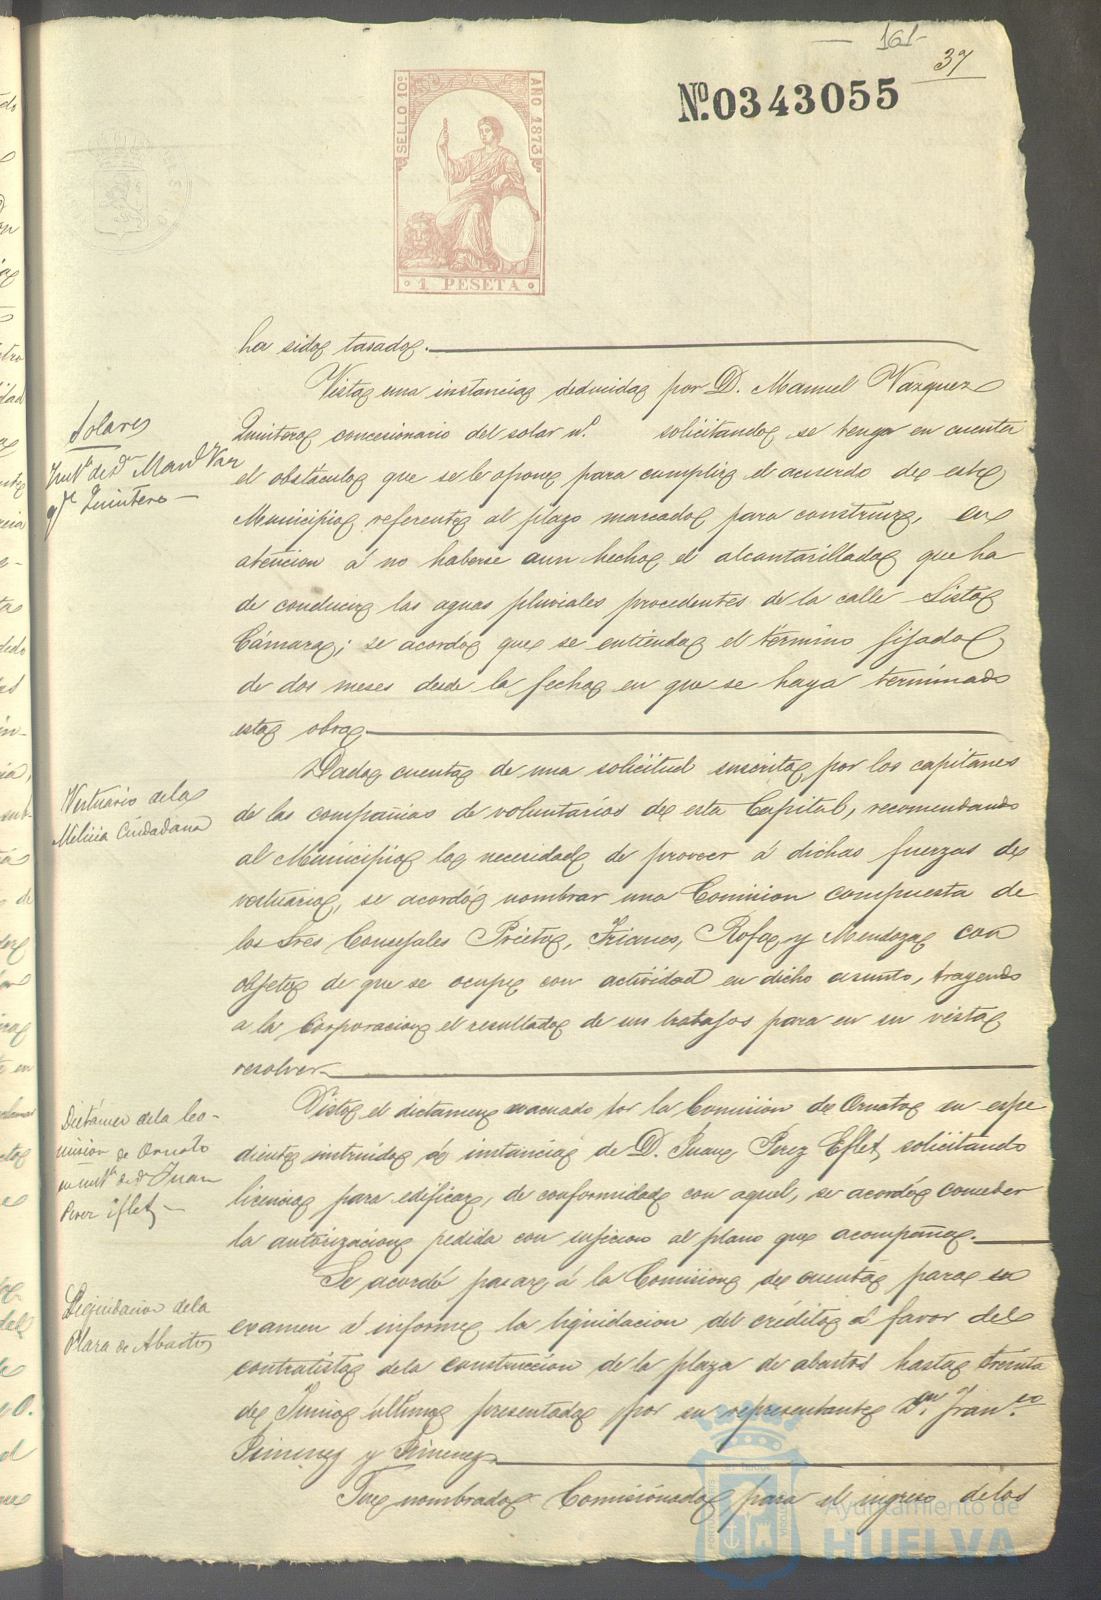 161-
37
Nº. 0343055
SELLO 10º
AÑO 1873
1 PESETA
ha sido tasado.
Vista una instancia deducida por D. Manuel Vazquez
Quintero concesionario del solar nº. solicitando se tenga en cuenta
el obstáculo que se le opone para cumplir el acuerdo de este
Municipio referente al plazo marcado para construir, en
atencion á no haberse aun hecho el alcantarillado que ha
de conducir las aguas pluviales procedentes de la calle Sisto
Cámara; se acordó que se entienda el término fijado
de dos meses desde la fecha en que se haya terminado
esta obra.
Solares
Inst.ª de dn Manl Vaz
qz Quintero
Dada cuenta de una solicitud suscrita por los capitanes
de las compañias de voluntarios de esta Capital, recomendando
al Municipio la necesidad de proveer á dichas fuerzas de
vestuario, se acordó nombrar una Comision compuesta de
los Sres Consejales Prieto, Trianes, Rofa y Mendoza con
objeto de que se ocupe con actividad en dicho asunto, trayendo
a la Corporacion el resultado de sus trabajos para en su vista
resolver.
Vestuario dela
Melicia Ciudadana
Visto el dictamen evacuado por la Comision de Ornato en espe
diente instruido á instancia de D. Juan Perez Eflet solicitando
licencia para edificar, de conformidad con aquel, se acordó conceder
la autorizacion pedida con sujecion al plano que acompaña.
Dictámen dela Co-
mision de Ornato
en inst.ª de dn Juan
Perez Iflet
Se acordó pasar á la Comision de cuenta para su
examen é informe la liquidacion del crédito á favor del
contratista dela construccion de la plaza de abastos hasta treinta
de Junio último presentada por su representante Dn. Fran.co
Jimenez y Jimenez
Liquidacion dela
Plaza de Abastos
Fue nombrado Comisionado para el ingreso delos
Ayuntamiento de
HUELVA